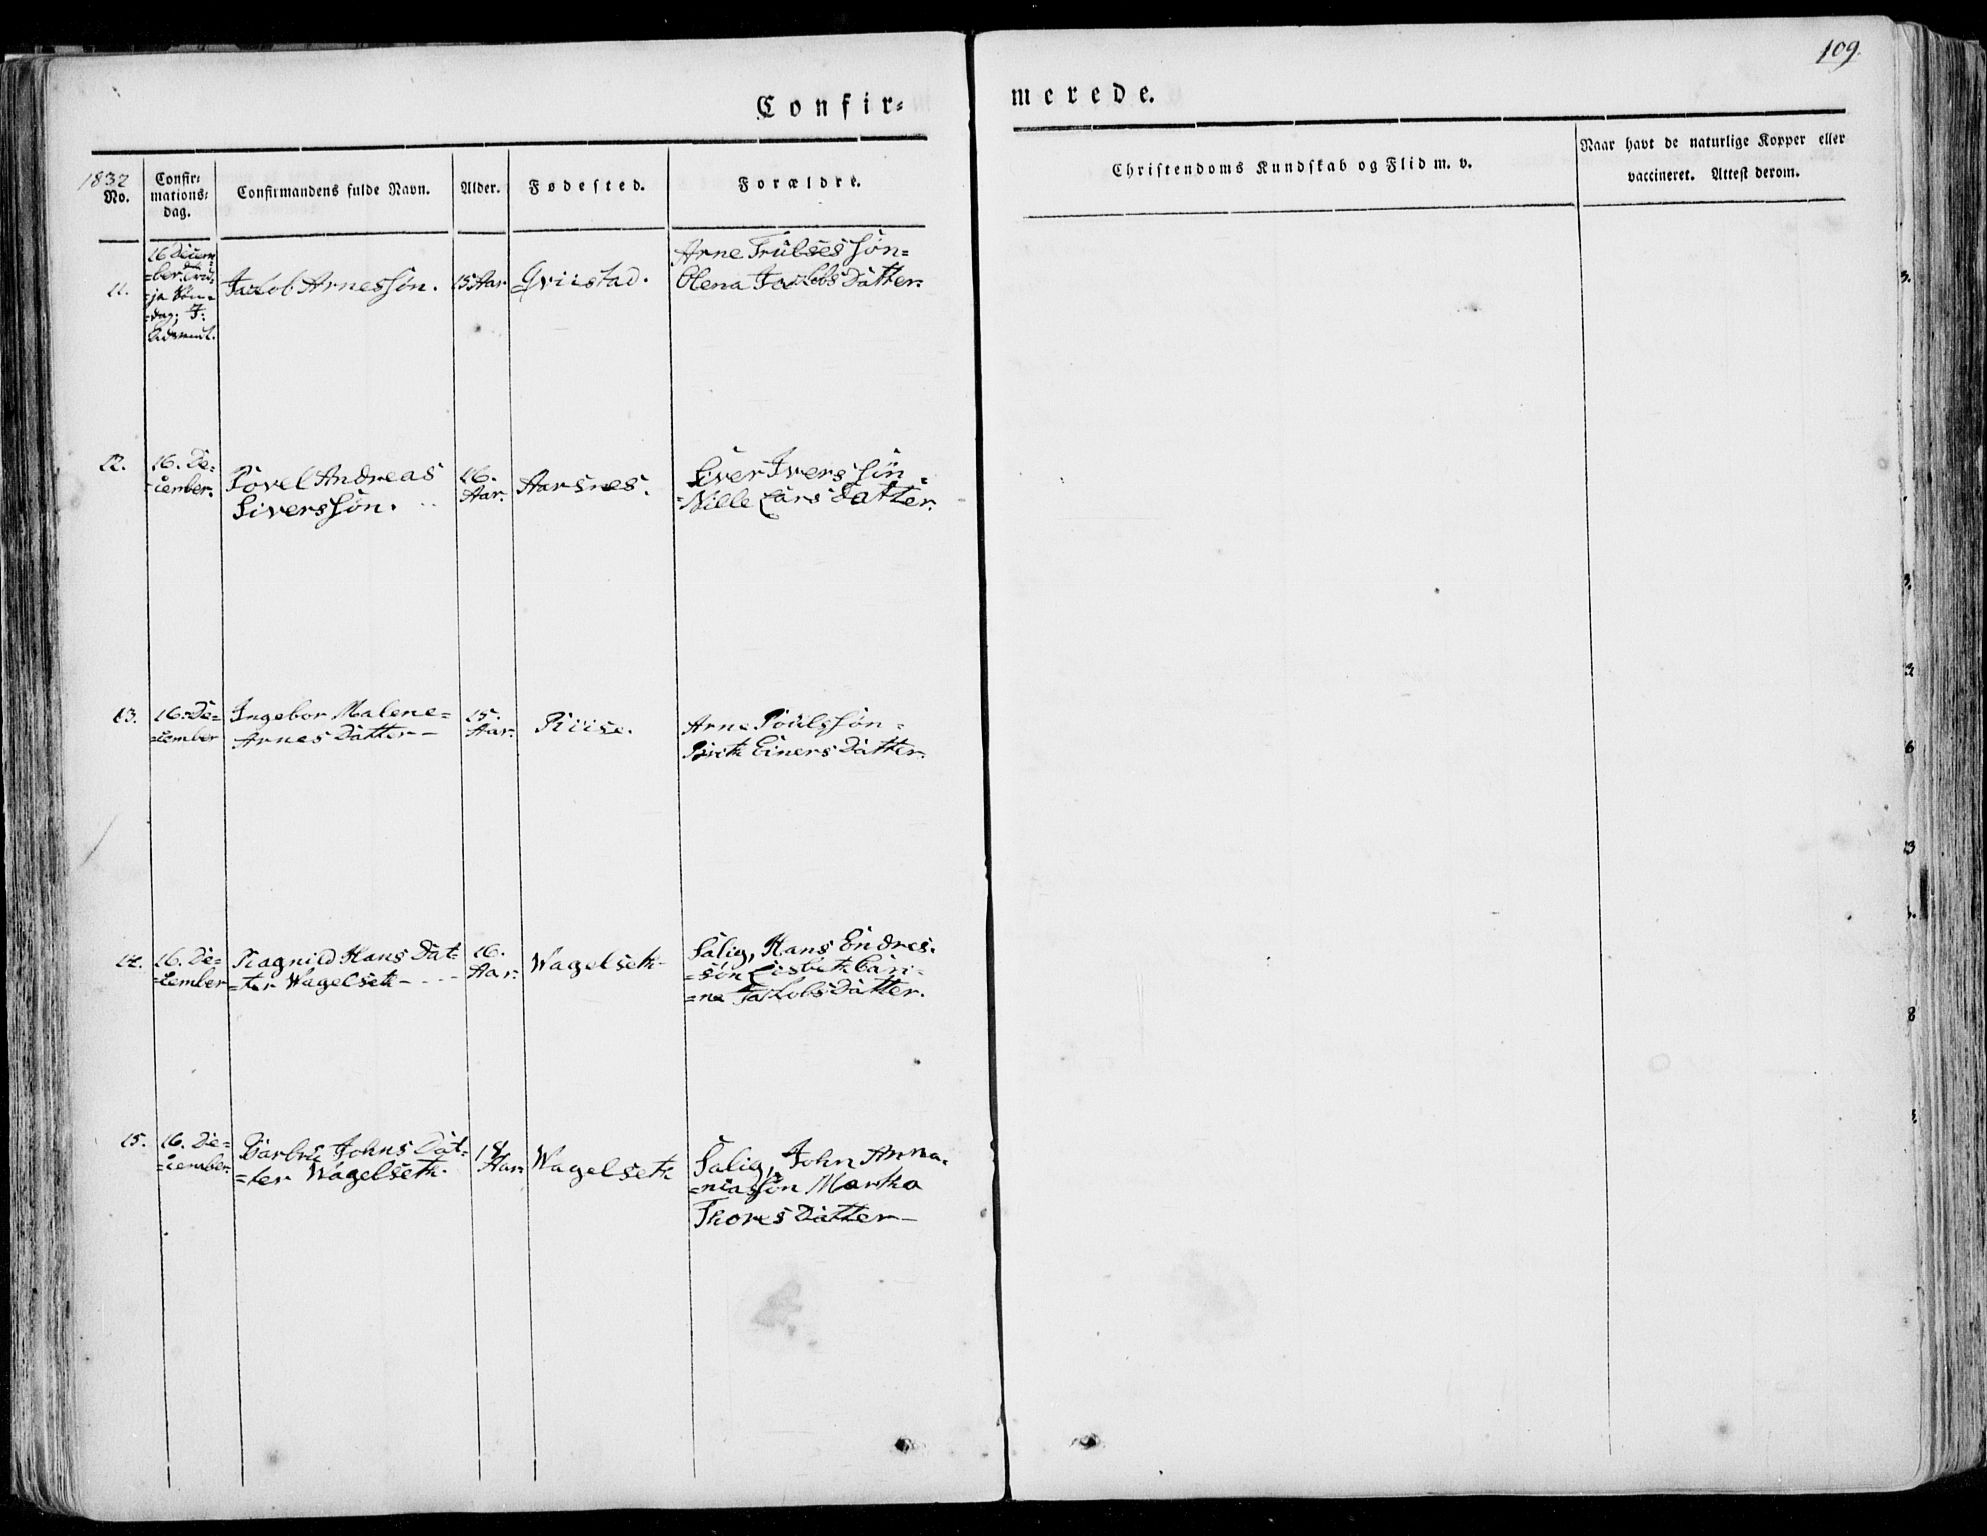 109.
Confir=
merede.
1832
No.
Confir=
mations=
dag.
Confirmandens fulde Navn.
Alder.
Fødested.
Forældre.
Christendoms Kundskab og Flid m. v.
Naar havt de naturlige Kopper eller
vaccineret. Attest derom.
11.
16 Decem-
=ber
=ja Søn=
=dag; J:
Advent.
Jacob Arnessøn.
15 Aar
Qviistad.
Arne Trulsessøn=
Olena Jacobs Datter
12.
16. De=
=cember.
Povel Andreas
Siverssøn.
16.
Aar.
Aarsnes.
Siver Iverssøn
=Nille Lars Datter.
13.
16. De=
=cember
Ingebor Malene=
Arnes Datter—
15.
Aar.
Riise.
Arne Poulssøn=
Birte Einers Datter
14.
16. De=
=cember
Ragnild Hans Dat-
=ter Wagelseth—
16.
Aar.
Wagelseth
Salig, Hans Endres-
=søn Lisbeth Cari=
=ne Jakobs Datter.
15.
16. De=
=cember.
Barbru Johns Dat=
=ter Wagelseth.
18
Aar.
Wagelseth
Salig, John Anna-
=niassøn Martha
Thores Datter—